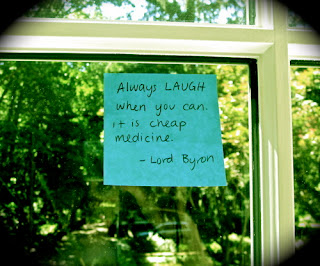 Always LAUGH
when you can.
it is cheap
medicine.
- Lord Byron